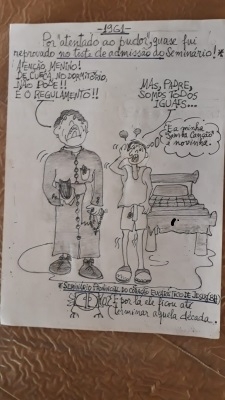 -1961-
Por "atentado ao pudor", quase fui
reprovado no teste de admissão do Seminário! *
ATENÇÃO, MENINO!
DE CUECA, NO DORMITÓRIO,
NÃO PODE!!
É O REGULAMENTO!!
MAS, PADRE,
SOMOS TODOS
IGUAIS...
E a minha
Samba Canção
é novinha.
* SEMINÁRIO PROVINCIAL DO CORAÇÃO EUCARÍSTICO DE JESUS (BH)
E por lá ele ficou até
terminar aquela década.